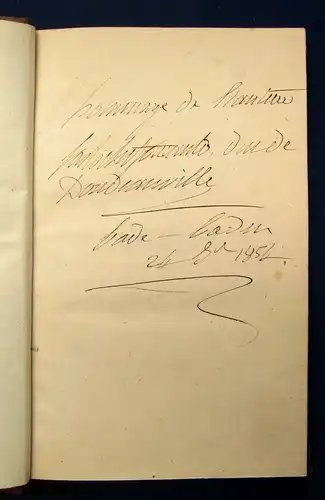 hommage de l'auteur
duc de
Doudeauville
Bade – Baden
24 8bre 1854.